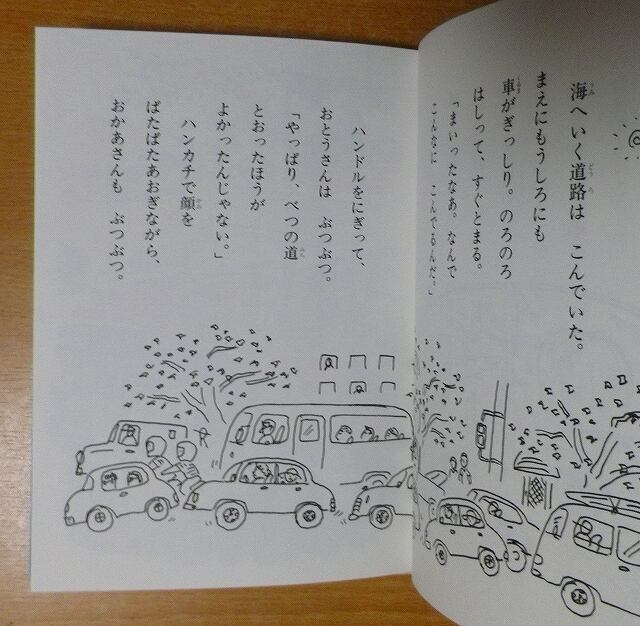 海へいく道路は　こんでいた。
まえにもうしろにも
車がぎっしり。のろのろ
はしって、すぐとまる。
「まいったなあ。なんで
こんなに　こんでるんだ。」
ハンドルをにぎって、
おとうさんは　ぶつぶつ。
「やっぱり、べつの道
とおったほうが
よかったんじゃない。」
ハンカチで顔を
ぱたぱたあおぎながら、
おかあさんも　ぶつぶつ。